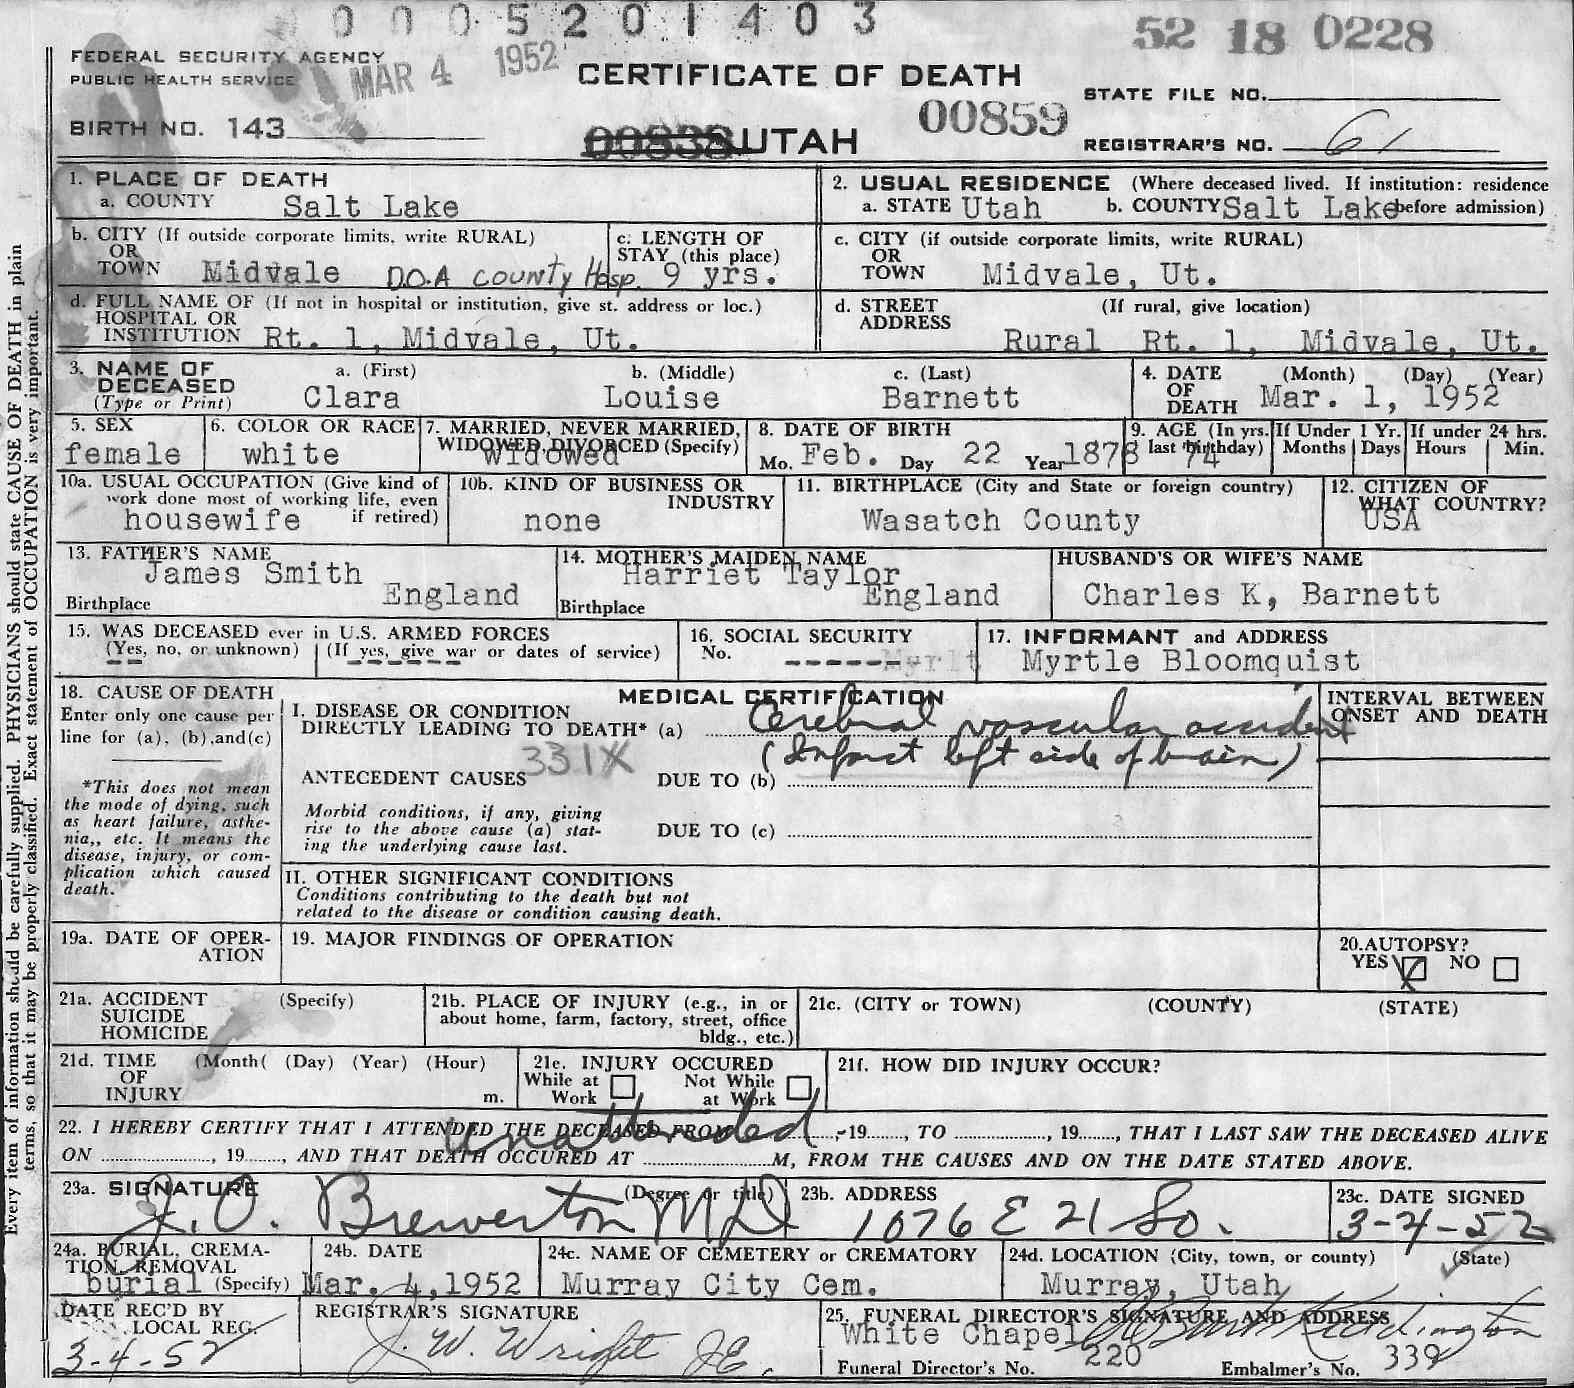 0 0 0 5 2 0 1 4 0 3
52 18 0228
FEDERAL SECURITY AGENCY
PUBLIC HEALTH SERVICE
MAR 4 1952
CERTIFICATE OF DEATH
STATE FILE NO.
BIRTH NO. 143
00838 UTAH
00859
REGISTRAR'S NO. 61
1. PLACE OF DEATH
a. COUNTY Salt Lake
2. USUAL RESIDENCE (Where deceased lived. If institution: residence
a. STATE Utah b. COUNTY Salt Lake before admission)
b. CITY (If outside corporate limits, write RURAL)
OR
TOWN Midvale D.O.A County Hosp.
c. LENGTH OF
STAY (this place)
9 yrs.
c. CITY (if outside corporate limits, write RURAL)
OR
TOWN Midvale, Ut.
d. FULL NAME OF (If not in hospital or institution, give st. address or loc.)
HOSPITAL OR
INSTITUTION Rt. 1, Midvale, Ut.
d. STREET (If rural, give location)
ADDRESS
Rural Rt. 1, Midvale, Ut.
3. NAME OF
DECEASED
(Type or Print)
a. (First) b. (Middle) c. (Last)
Clara Louise Barnett
4. DATE (Month) (Day) (Year)
OF
DEATH Mar. 1, 1952
5. SEX
female
6. COLOR OR RACE
white
7. MARRIED, NEVER MARRIED,
WIDOWED, DIVORCED (Specify)
widowed
8. DATE OF BIRTH
Mo. Feb. Day 22 Year 1878
9. AGE (In yrs.
last birthday)
74
If Under 1 Yr.
Months Days
If under 24 hrs.
Hours Min.
10a. USUAL OCCUPATION (Give kind of
work done most of working life, even
if retired)
housewife
10b. KIND OF BUSINESS OR
INDUSTRY
none
11. BIRTHPLACE (City and State or foreign country)
Wasatch County
12. CITIZEN OF
WHAT COUNTRY?
USA
13. FATHER'S NAME
James Smith
Birthplace England
14. MOTHER'S MAIDEN NAME
Harriet Taylor
Birthplace England
HUSBAND'S OR WIFE'S NAME
Charles K, Barnett
15. WAS DECEASED ever in U.S. ARMED FORCES
(Yes, no, or unknown) (If yes, give war or dates of service)
16. SOCIAL SECURITY
No. ------
17. INFORMANT and ADDRESS
Myrtle Bloomquist
18. CAUSE OF DEATH
Enter only one cause per
line for (a), (b),and(c)
*This does not mean
the mode of dying, such
as heart failure, asthe-
nia,, etc. It means the
disease, injury, or com-
plication which caused
death.
MEDICAL CERTIFICATION
I. DISEASE OR CONDITION
DIRECTLY LEADING TO DEATH* (a) Cerebral vascular accident
(Infarct left side of brain)
331X
ANTECEDENT CAUSES DUE TO (b)
Morbid conditions, if any, giving
rise to the above cause (a) stat-
ing the underlying cause last.
DUE TO (c)
INTERVAL BETWEEN
ONSET AND DEATH
II. OTHER SIGNIFICANT CONDITIONS
Conditions contributing to the death but not
related to the disease or condition causing death.
19a. DATE OF OPER-
ATION
19. MAJOR FINDINGS OF OPERATION
20.AUTOPSY?
YES NO
21a. ACCIDENT (Specify)
SUICIDE
HOMICIDE
21b. PLACE OF INJURY (e.g., in or
about home, farm, factory, street, office
bldg., etc.)
21c. (CITY or TOWN) (COUNTY) (STATE)
21d. TIME (Month( (Day) (Year) (Hour)
OF
INJURY m.
21e. INJURY OCCURED
While at Not While
Work at Work
21f. HOW DID INJURY OCCUR?
unattended
22. I HEREBY CERTIFY THAT I ATTENDED THE DECEASED FROM ........, 19......., TO ................., 19......., THAT I LAST SAW THE DECEASED ALIVE
ON ..................., 19......., AND THAT DEATH OCCURED AT .....................M, FROM THE CAUSES AND ON THE DATE STATED ABOVE.
23a. SIGNATURE (Degree or title)
J. O. Brewerton MD
23b. ADDRESS
1076 E 21 So.
23c. DATE SIGNED
3-4-52
24a. BURIAL, CREMA-
TION, REMOVAL
burial (Specify)
24b. DATE
Mar. 4, 1952
24c. NAME OF CEMETERY or CREMATORY
Murray City Cem.
24d. LOCATION (City, town, or county) (State)
Murray, Utah
DATE REC'D BY
LOCAL REG.
3-4-52
REGISTRAR'S SIGNATURE
J. W. Wright
25. FUNERAL DIRECTOR'S SIGNATURE AND ADDRESS
White Chapel
Funeral Director's No. 220 Embalmer's No. 339
Every item of information should be carefully supplied. PHYSICIANS should state CAUSE OF DEATH in plain
terms, so that it may be properly classified. Exact statement of OCCUPATION is very important.